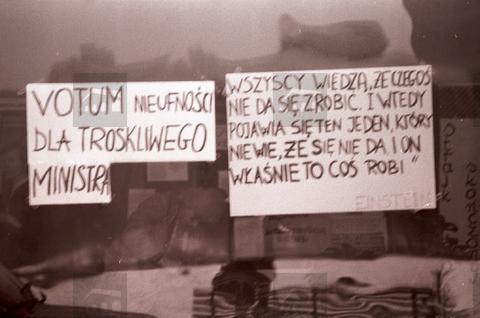 VOTUM NIEUFNOŚCI
DLA TROSKLIWEGO
MINISTRA
WSZYSCY WIEDZĄ, ŻE CZEGOŚ
NIE DA SIĘ ZROBIĆ. I WTEDY
POJAWIA SIĘ TEN JEDEN, KTÓRY
NIE WIE, ŻE SIĘ NIE DA. I ON
WŁAŚNIE TO COŚ ROBI"
EINSTEIN